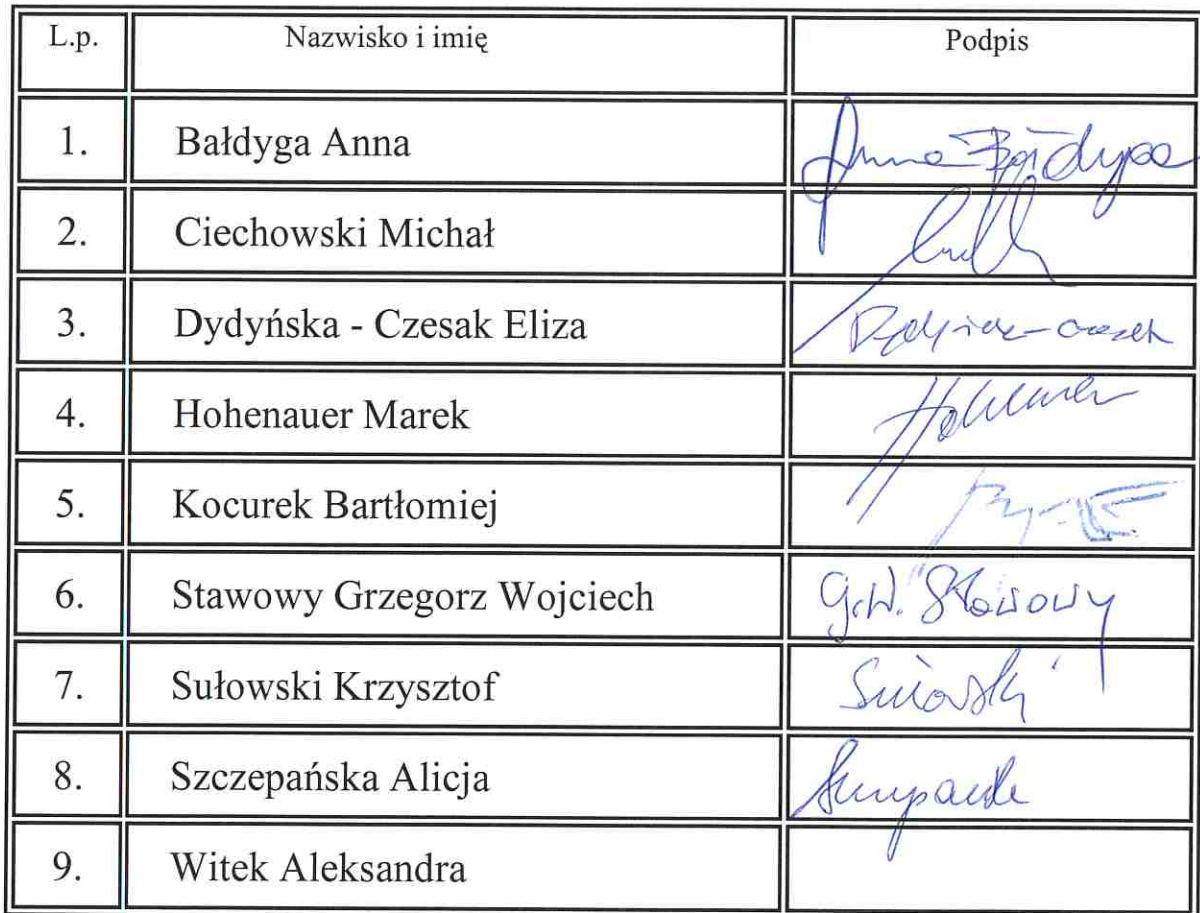 L.p. Nazwisko i imię Podpis
1. Bałdyga Anna Anna Bałdyga
2. Ciechowski Michał
3. Dydyńska - Czesak Eliza
4. Hohenauer Marek
5. Kocurek Bartłomiej
6. Stawowy Grzegorz Wojciech G.W. Stawowy
7. Sułowski Krzysztof Sułowski
8. Szczepańska Alicja
9. Witek Aleksandra